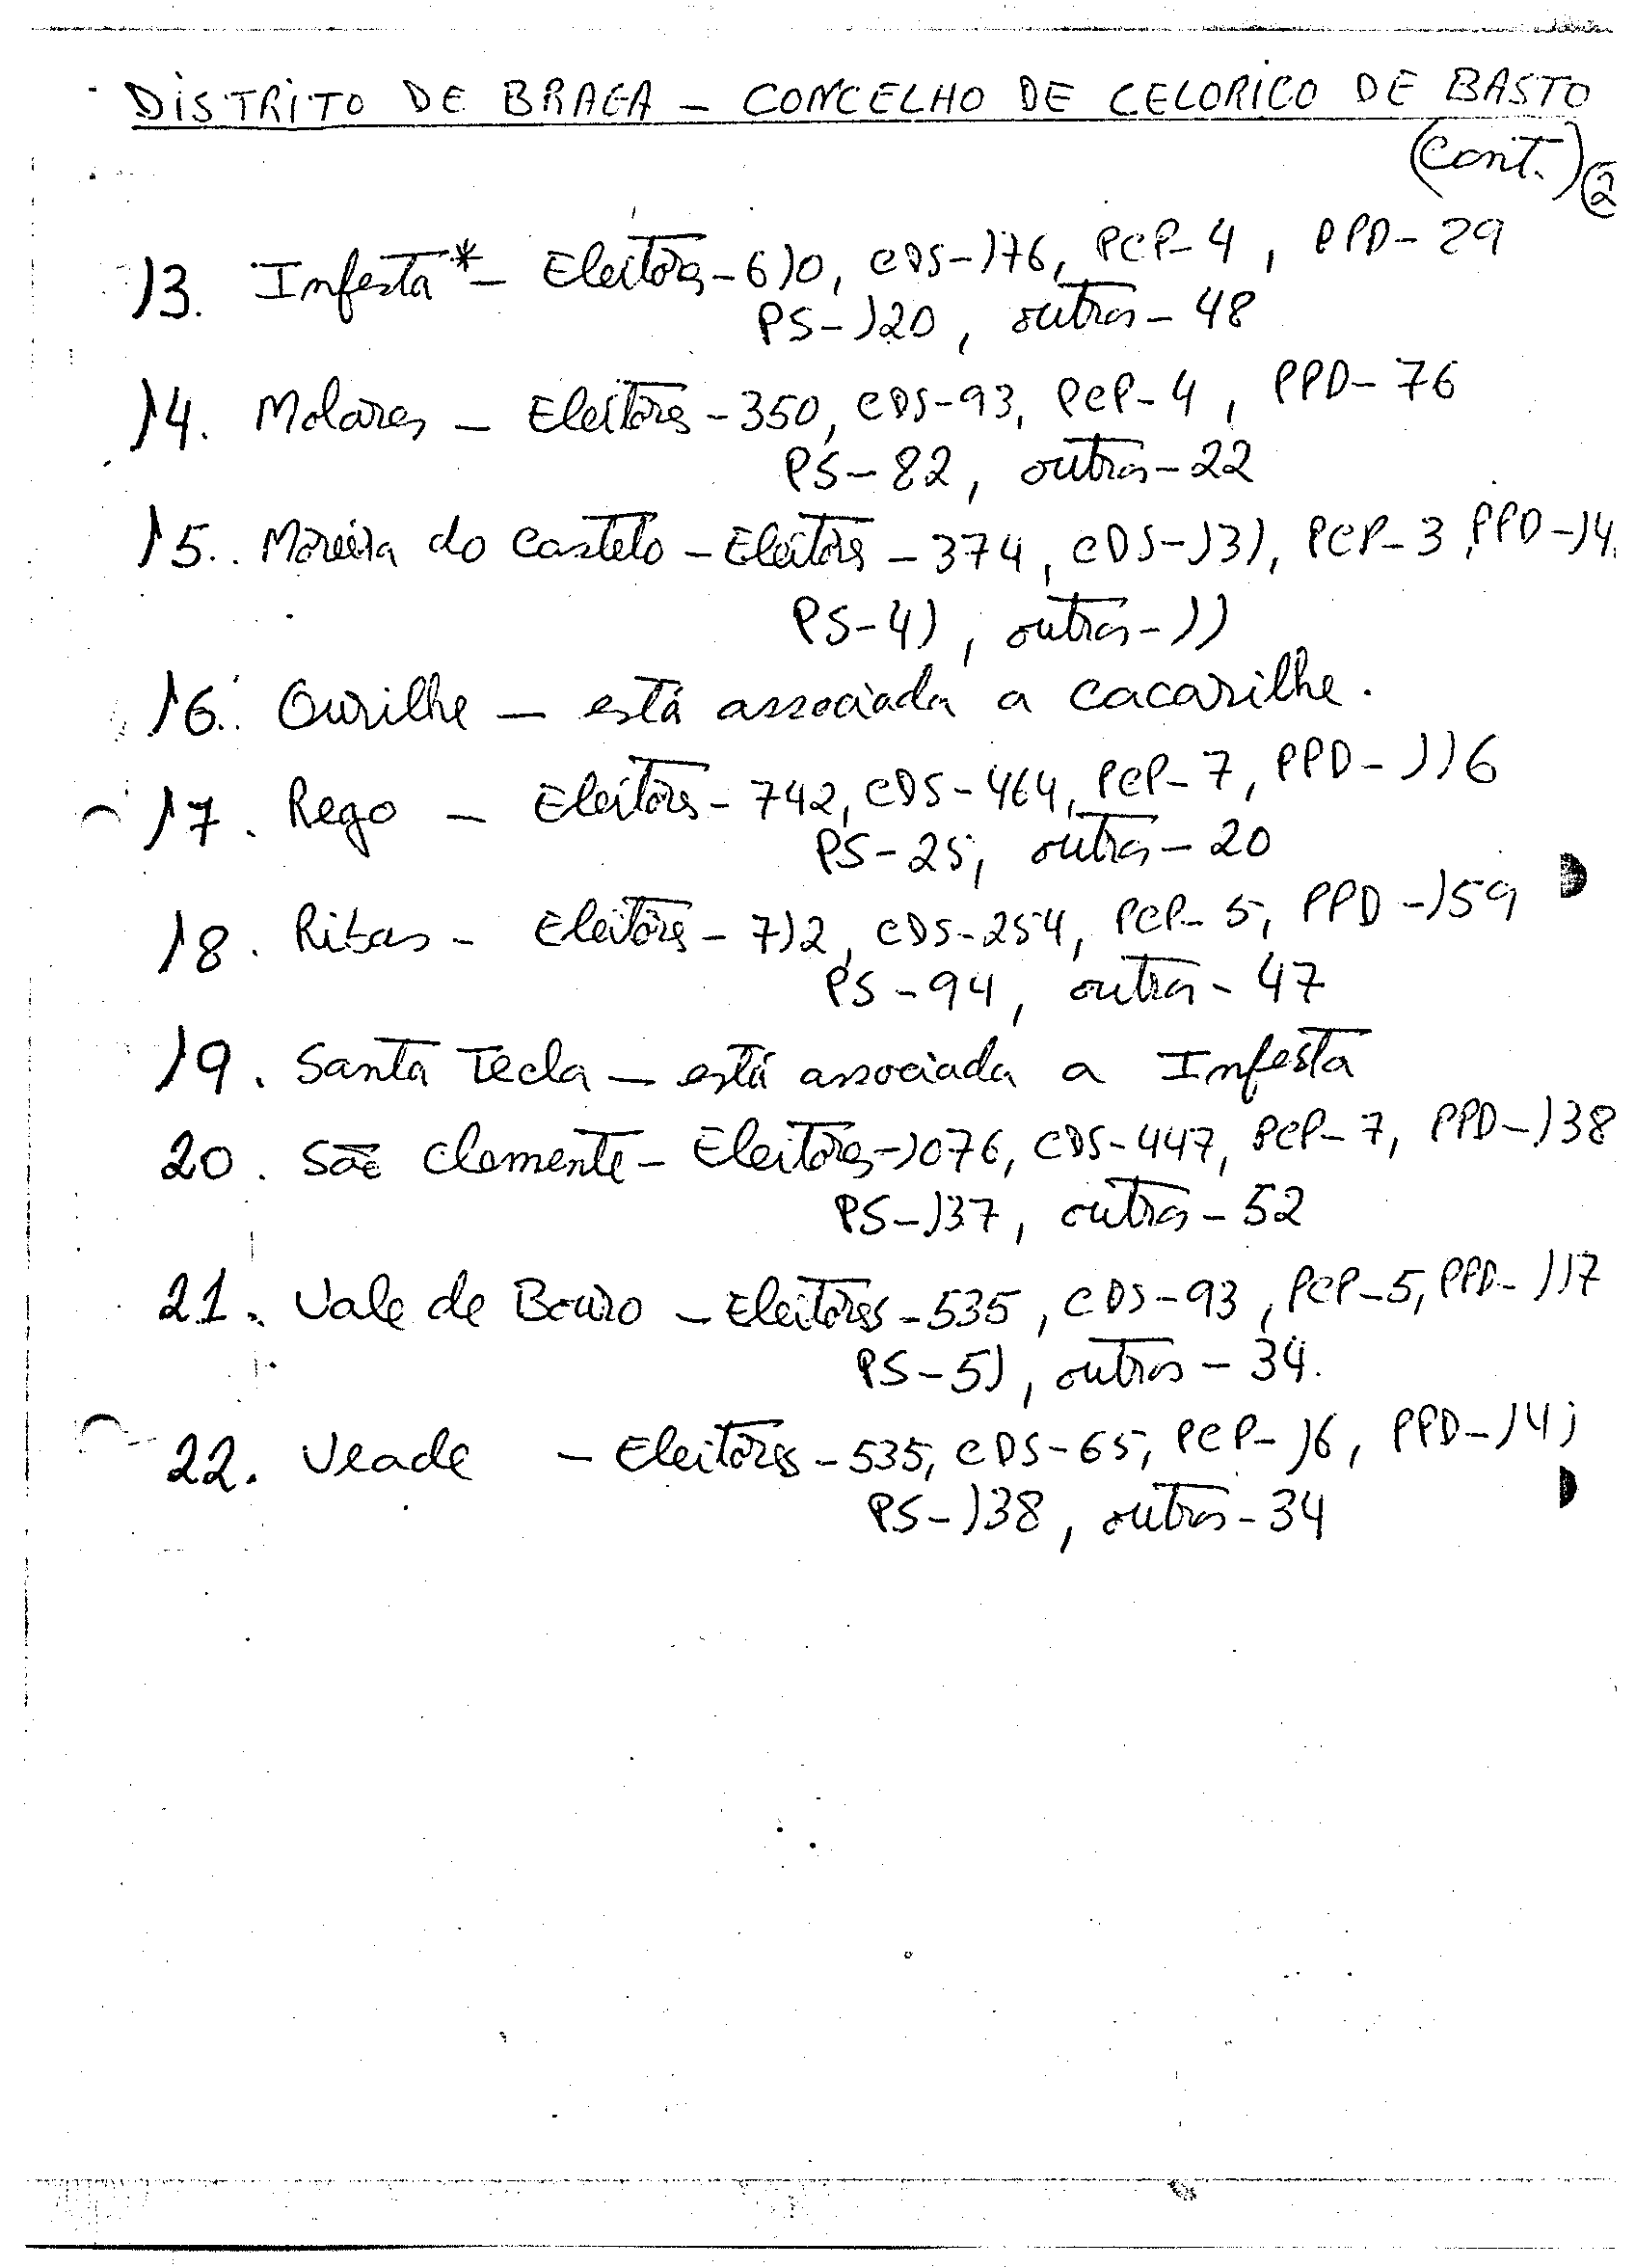 DISTRITO DE BRAGA - CONCELHO DE CELORICO DE BASTO
(cont.) 2
13. Infesta* - Eleitores - 610, CDS - 176, PCP - 4, PPD - 29
PS - 120, outros - 48
14. Molares - Eleitores - 350, CDS - 93, PCP - 4, PPD - 76
PS - 82, outros - 22
15. Moreira do Castelo - Eleitores - 374, CDS - 131, PCP - 3, PPD - 14
PS - 41, outros - 11
16. Ourilhe - está associada a Caçarilhe.
17. Rego - Eleitores - 742, CDS - 464, PCP - 7, PPD - 116
PS - 25, outros - 20
18. Ribas - Eleitores - 712, CDS - 254, PCP - 5, PPD - 159
PS - 94, outros - 47
19. Santa Tecla - está associada a Infesta
20. São Clemente - Eleitores - 1076, CDS - 447, PCP - 7, PPD - 138
PS - 137, outros - 52
21. Vale de Bouro - Eleitores - 535, CDS - 93, PCP - 5, PPD - 117
PS - 51, outros - 34.
22. Veade - Eleitores - 535, CDS - 65, PCP - 16, PPD - 141
PS - 138, outros - 34